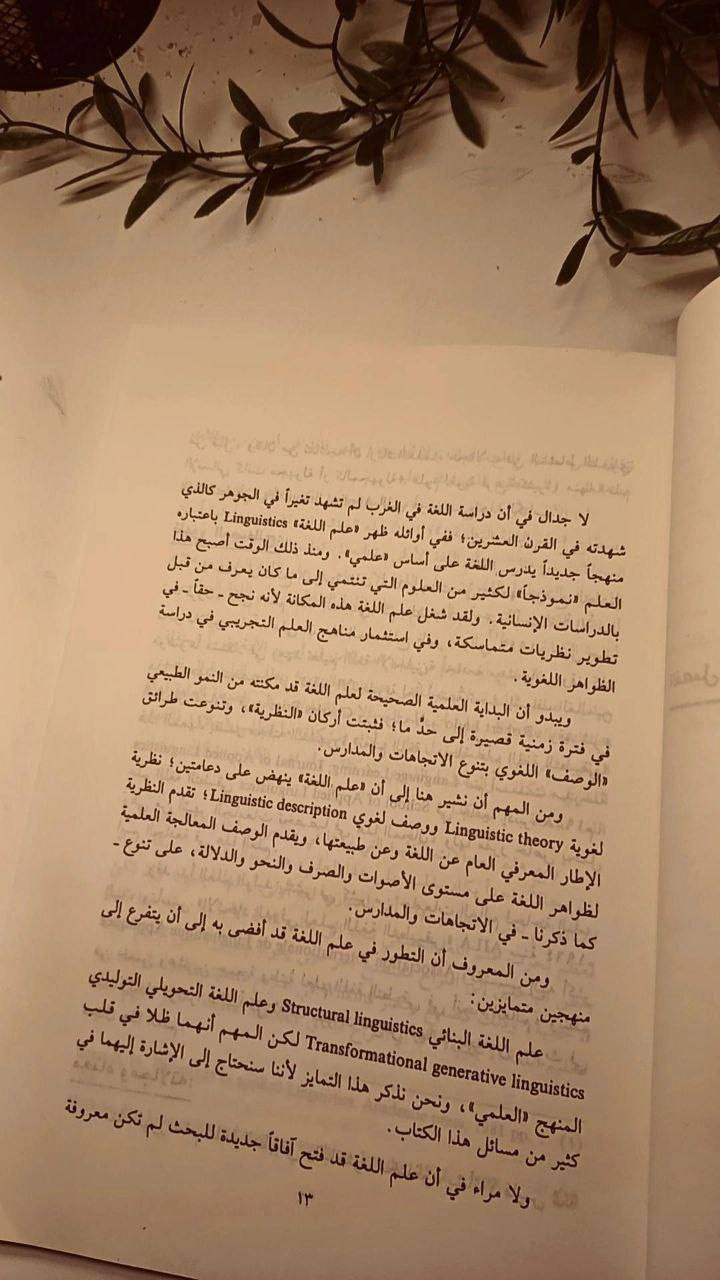 لا جدال في أن دراسة اللغة في الغرب لم تشهد تغيراً في الجوهر كالذي
شهدته في القرن العشرين؛ ففي أوائله ظهر «علم اللغة» Linguistics باعتباره
منهجاً جديداً يدرس اللغة على أساس «علمي». ومنذ ذلك الوقت أصبح هذا
العلم «نموذجاً» لكثير من العلوم التي تنتمي إلى ما كان يعرف من قبل
بالدراسات الإنسانية. ولقد شغل علم اللغة هذه المكانة لأنه نجح ـ حقاً ـ في
تطوير نظريات متماسكة، وفي استثمار مناهج العلم التجريبي في دراسة
الظواهر اللغوية.
ويبدو أن البداية العلمية الصحيحة لعلم اللغة قد مكنته من النمو الطبيعي
في فترة زمنية قصيرة إلى حدٍّ ما؛ فثبتت أركان «النظرية»، وتنوعت طرائق
«الوصف» اللغوي بتنوع الاتجاهات والمدارس.
ومن المهم أن نشير هنا إلى أن «علم اللغة» ينهض على دعامتين؛ نظرية
لغوية Linguistic theory ووصف لغوي Linguistic description؛ تقدم النظرية
الإطار المعرفي العام عن اللغة وعن طبيعتها، ويقدم الوصف المعالجة العلمية
لظواهر اللغة على مستوى الأصوات والصرف والنحو والدلالة، على تنوع ـ
كما ذكرنا ـ في الاتجاهات والمدارس.
ومن المعروف أن التطور في علم اللغة قد أفضى به إلى أن يتفرع إلى
منهجين متمايزين:
علم اللغة البنائي Structural linguistics وعلم اللغة التحويلي التوليدي
Transformational generative linguistics لكن المهم أنهما ظلا في قلب
المنهج «العلمي»، ونحن نذكر هذا التمايز لأننا سنحتاج إلى الإشارة إليهما في
كثير من مسائل هذا الكتاب.
ولا مراء في أن علم اللغة قد فتح آفاقاً جديدة للبحث لم تكن معروفة
١٣